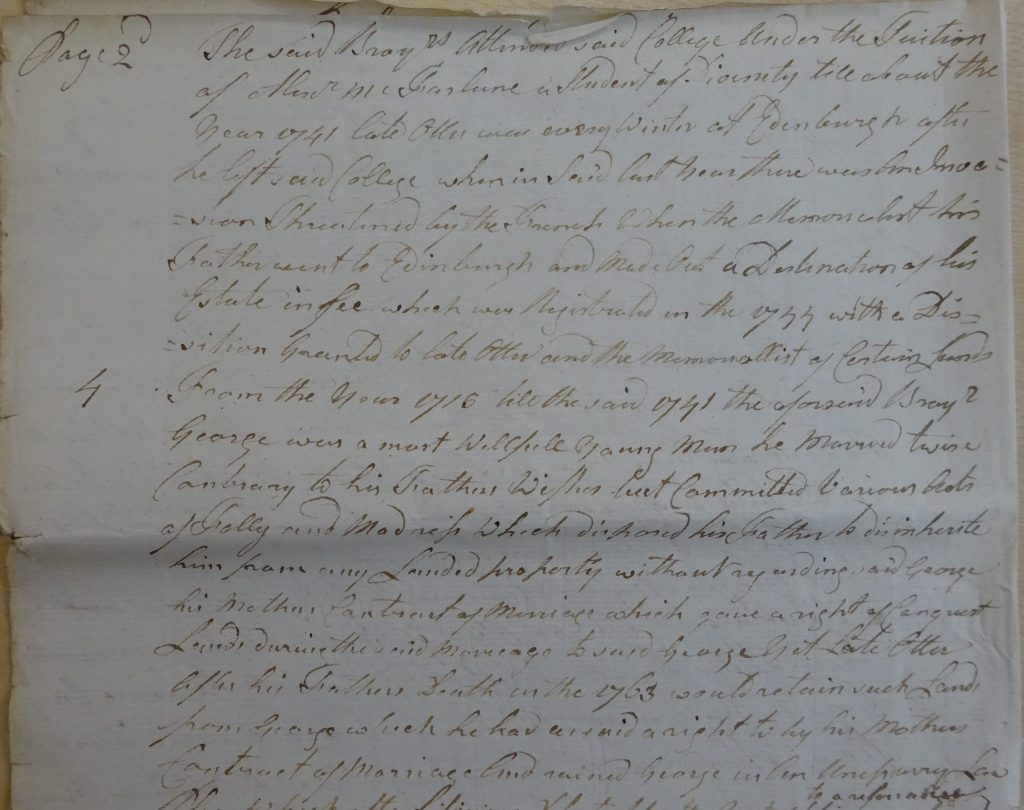 Page 2d
The said Broyrs Attend said College Under the Tuition
of Mr Mc Farlane a Student of Divinity till about the
Year 1741 late Otter was every Winter at Edinburgh after
he left said College wherein said last Year there was ane Inva=
=sion Threatened by the French When the Memorialist his
Father went to Edinburgh and Made Out a Destination of his
Estate in fee which was Registrated in the 1744 with a Dis=
=sition Granted to late Otter and the Memoriallist of Certain Lands
4 From the Year 1716 till the said 1741 the aforesaid Broyr
George was a most Willfull Young Man he Married twise
Contrary to his Fathers Wishes but Committed Various Acts
of Folly and Madness Which disposed his Father to disinherite
him from any Landed property without regarding said George
his Mothers Contract of Marriage which gave a right of Conquest
Lands during the said Marriage to said George Yet Late Otter
After his Fathers Death in the 1763 would retain such Lands
from George which he had as said a right to by his Mothers
Contract of Marriage And ruined George in ane Law
to a